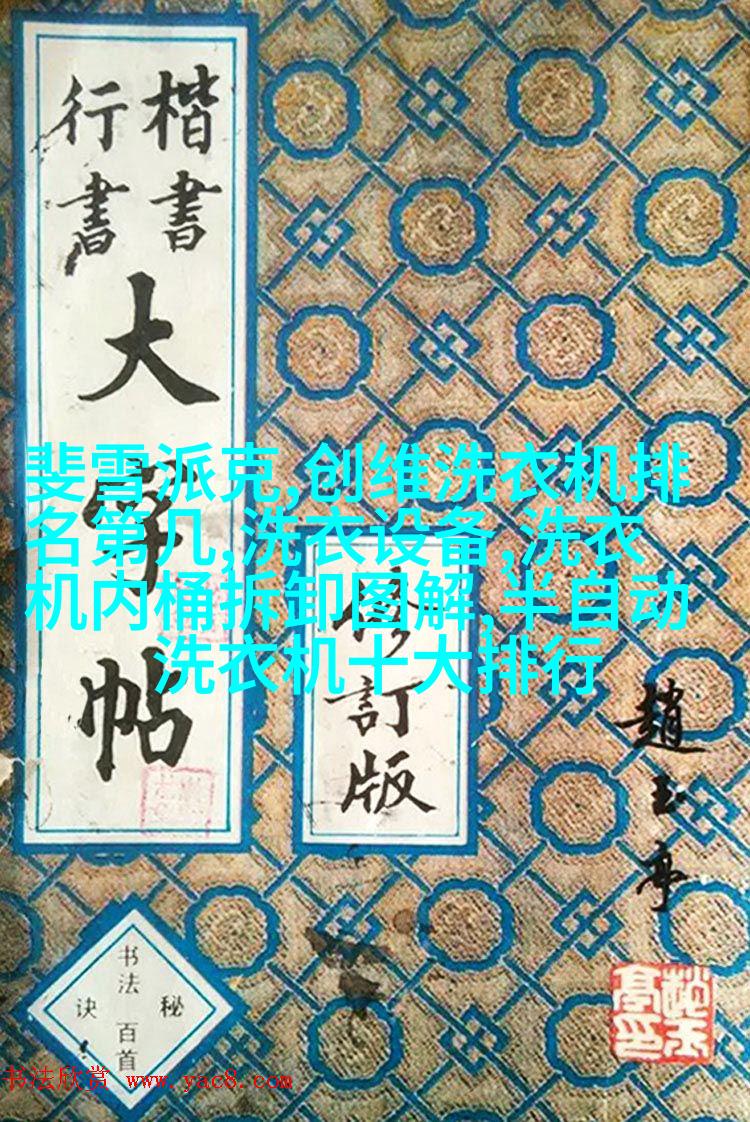 楷書
行書
大字帖
斐雪派克,创维洗衣机排
名第几,洗衣设备,洗衣
机内桶拆卸图解,半自动
洗衣机十大排行
修訂版
趙玉亭
书法百首
秘诀
书法欣赏 www.yac8.com